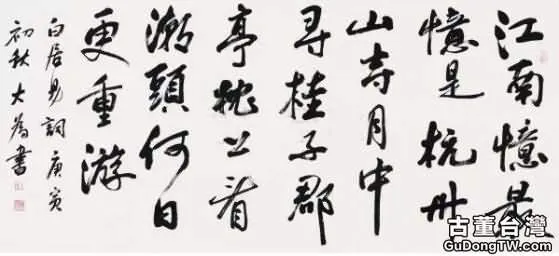 江南憶最
憶是杭州
山寺月中
尋桂子郡
亭枕上看
潮頭何日
更重游
白居易詞庚寅
初秋大為書
古董台灣
GuDongTW.com